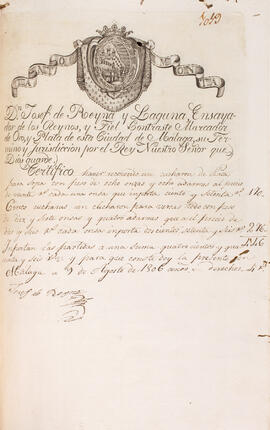 Dn. Josef de Reyna y Laguna, Ensaya-
dor de los Reynos, y Fiel Contraste Marcador
de Oro, y Plata de esta Ciudad de Malaga, su Ter-
mino y jurisdiccion por el Rey Nuestro Señor que
Dios guarde.
Certifico haver reconocido un cucharon de plata
para sopa con peso de ocho onzas y ocho adarmes al precio
de veinte rs. cada una onza que importa ciento y setenta rs.
Cinco cucharas un cucharon para todo con peso
de diez y siete onzas y quatro adarmes que al precio de
diez y seis rs. cada onza importa doscientos setenta y seis rs. 276
Importan las partidas a una suma quatrocientos y qua-
renta y seis rs. y para que conste doy la presente en
Malaga a 9 de Agosto de 1806 años. derechos 4 rs.
Josef de Reyna